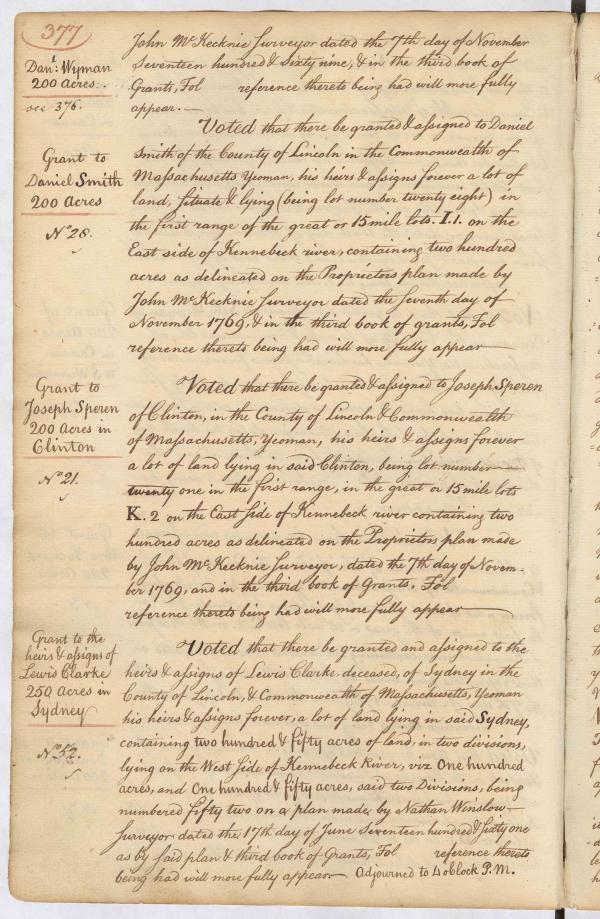 377
John McKecknie Surveyor dated the 7th day of November
Seventeen hundred & Sixty nine, & in the third book of
Grants, Fol reference thereto being had will more fully
appear.
Danl. Wyman
200 Acres.
see 376.
Voted that there be granted & assigned to Daniel
Smith of the County of Lincoln in the Commonwealth of
Massachusetts Yeoman, his heirs & assigns forever a lot of
land, situate & lying (being lot number twenty eight) in
the first range of the great or 15 mile lots. I.1. on the
East side of Kennebeck river, containing two hundred
acres as delineated on the Proprietors plan made by
John McKecknie Surveyor dated the Seventh day of
November 1769, & in the third book of grants, Fol
reference thereto being had will more fully appear
Grant to
Daniel Smith
200 Acres
No. 28.
Voted that there be granted & assigned to Joseph Speren
of Clinton, in the County of Lincoln & Commonwealth
of Massachusetts, Yeoman, his heirs & assigns forever
a lot of land lying in said Clinton, being lot number
twenty one in the first range, in the great or 15 mile lots
K. 2 on the East side of Kennebeck river containing two
hundred acres as delineated on the Proprietors plan made
by John McKecknie Surveyor, dated the 7th day of Novem-
ber 1769, and in the third book of Grants, Fol
reference thereto being had will more fully appear
Grant to
Joseph Speren
200 Acres in
Clinton
No. 21.
Voted that there be granted and assigned to the
heirs & assigns of Lewis Clarke, deceased, of Sydney in the
County of Lincoln, & Commonwealth of Massachusetts, Yeoman
his heirs & assigns forever, a lot of land lying in said Sydney,
containing two hundred & fifty acres of land, in two divisions,
lying on the West Side of Kennebeck River, viz One hundred
acres, and One hundred & fifty acres, said two Divisions, being
numbered fifty two on a plan made by Nathan Winslow
Surveyor dated the 17th day of June Seventeen hundred & Sixty one
as by said plan & third book of Grants, Fol reference thereto
being had will more fully appear Adjourned to 4 oClock P.M.
Grant to the
heirs & assigns of
Lewis Clarke
250 Acres in
Sydney
No. 52.